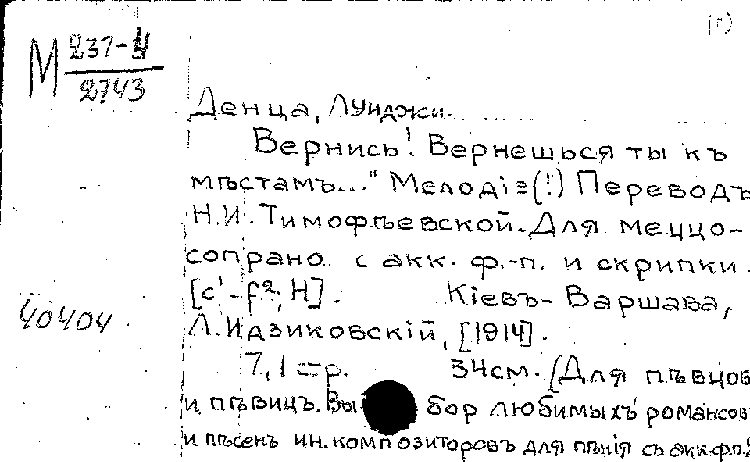 (п)
М 237-4
2743
Денца, Луиджи.
Вернись! Вернешься ты къ
мѣстамъ..." Мелодіз(!) Переводъ
Н.И. Тимофѣевской. Для меццо-
сопрано с акк. ф.-п. и скрипки.
[c¹-f², H]. Кіевъ-Варшава,
40404
Л. Идзиковскій, [1914].
7, 1 стр. 34см. (Для пѣвцов
и пѣвицъ. Вы бор любимыхъ романсов
и пѣсенъ ин. композиторовъ для пѣнія съ акк. ф.п.)